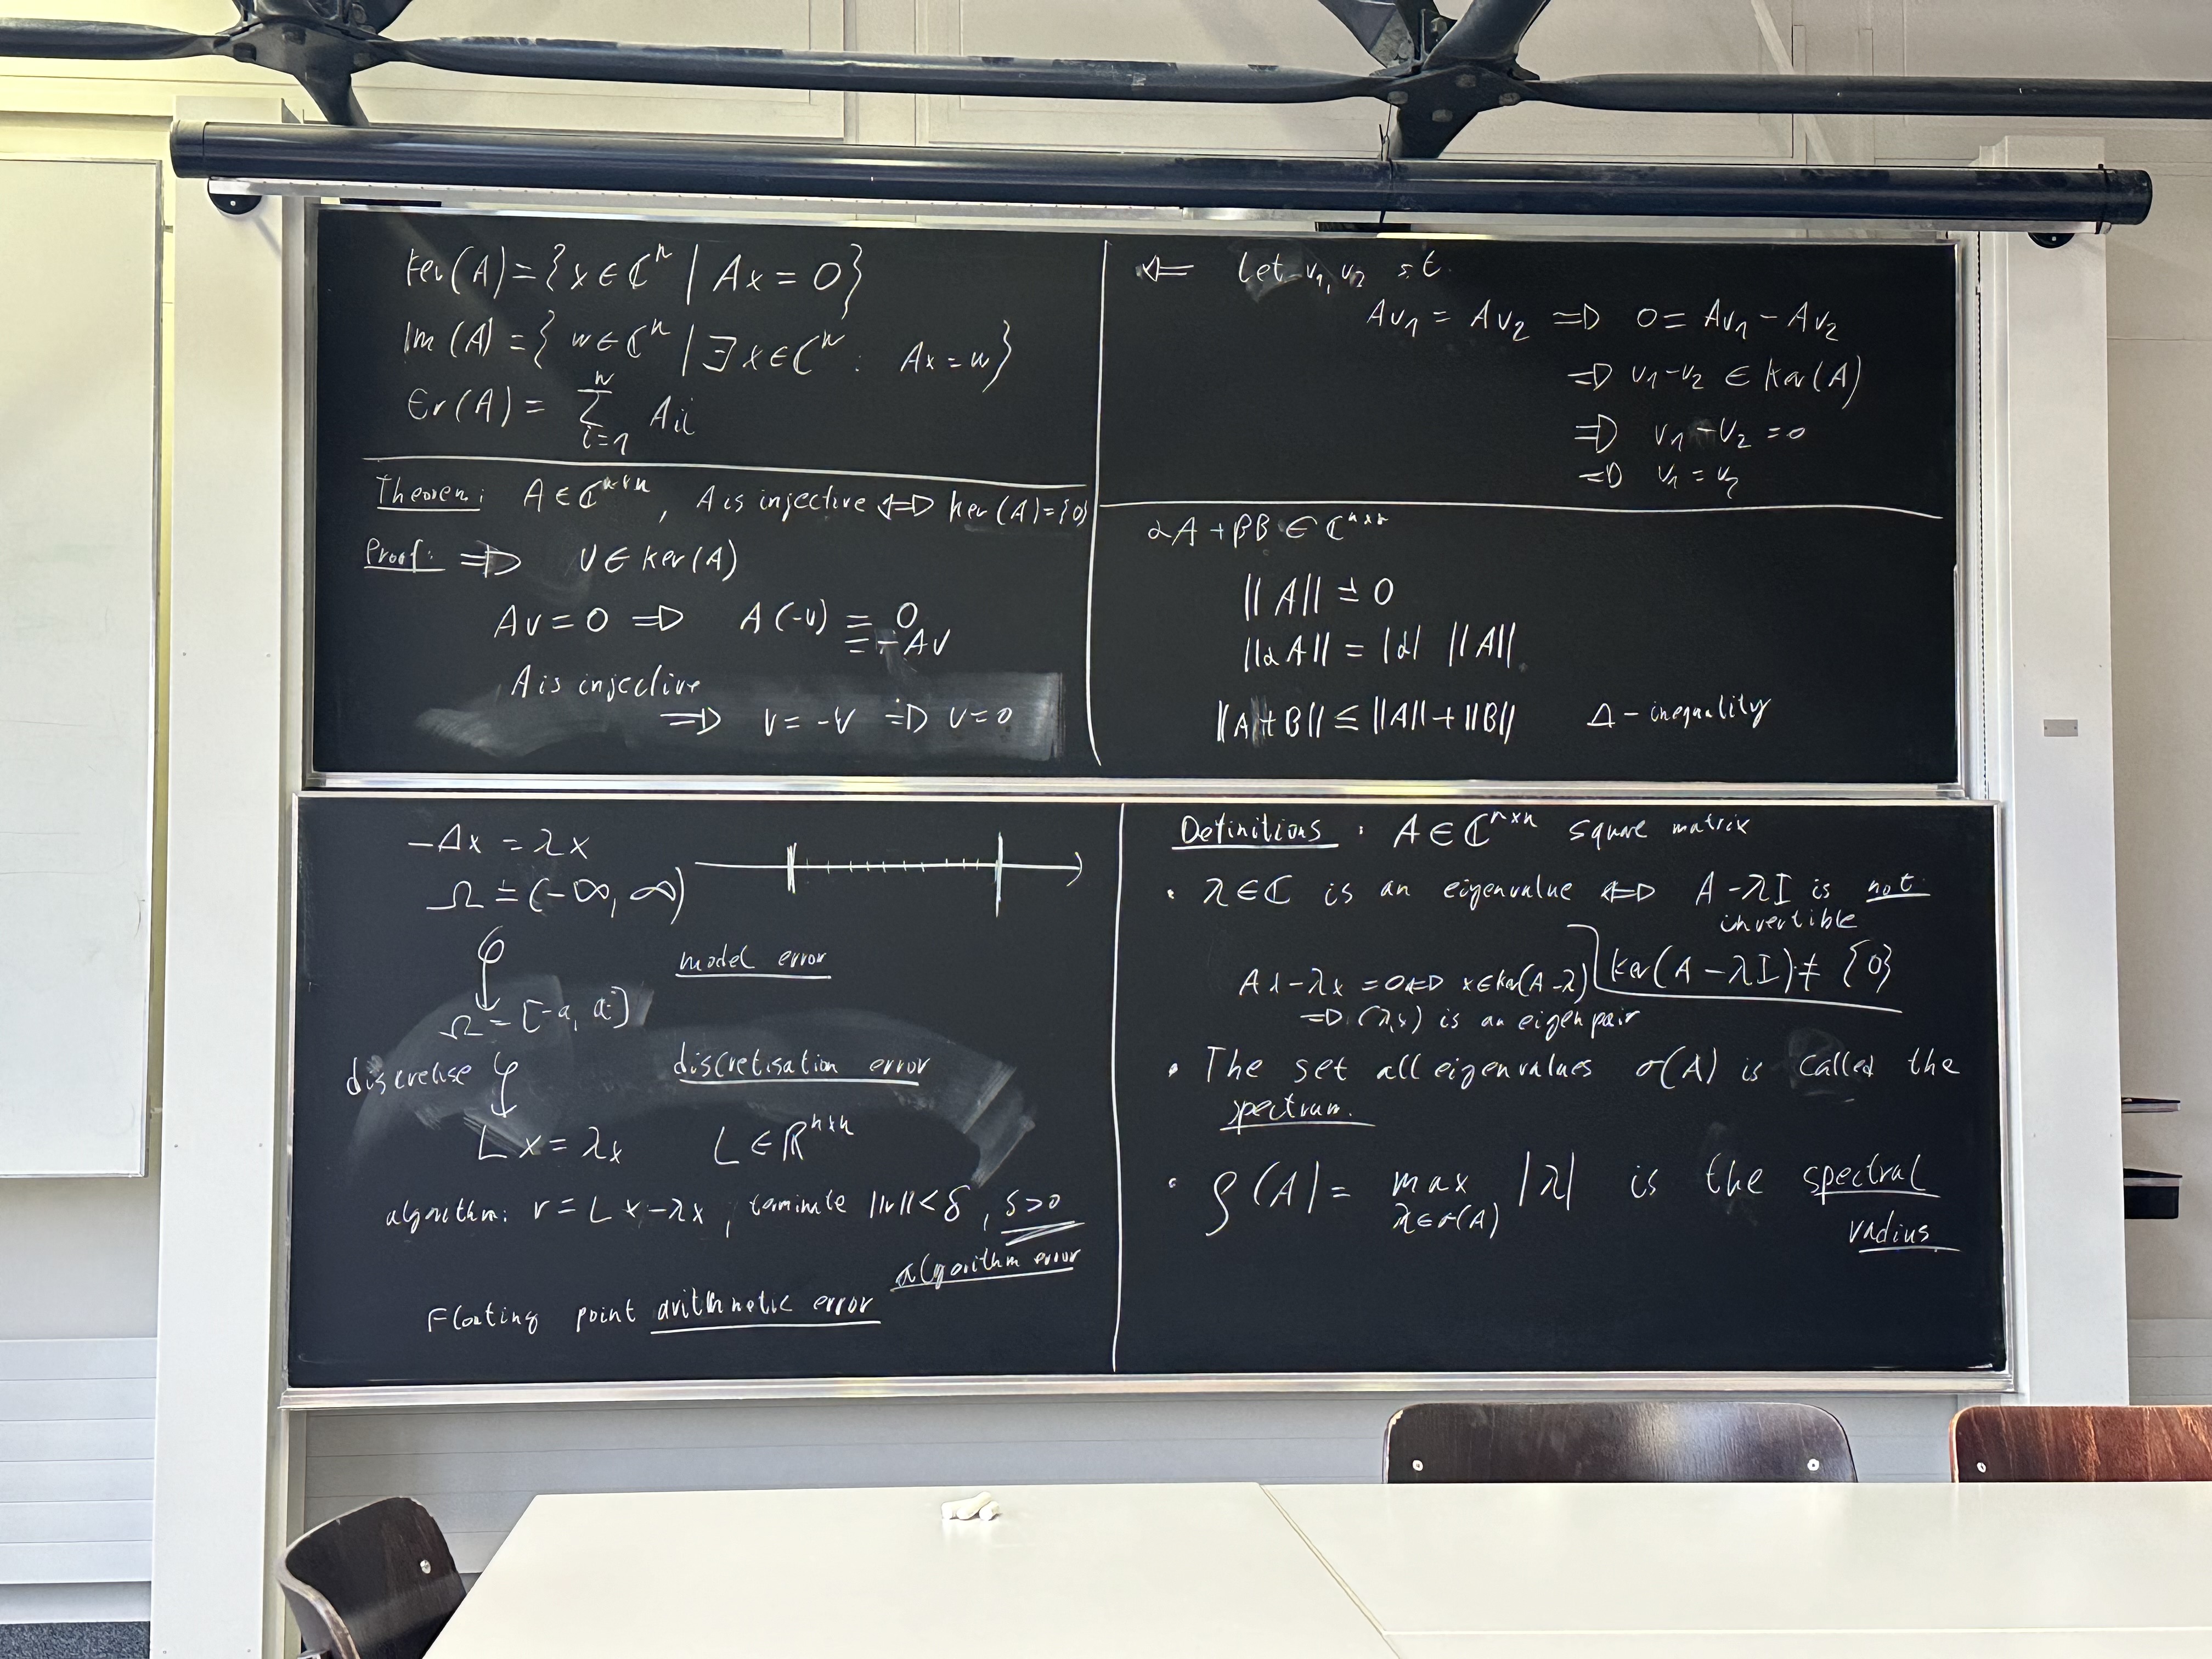 ker(A) = {x ∈ ℂⁿ | Ax = 0}
Im(A) = { w ∈ ℂⁿ | ∃ x ∈ ℂⁿ : Ax = w}
tr(A) = ∑_{i=1}^{n} Aii
Theorem: A ∈ ℂⁿˣⁿ, A is injective ⇔ ker(A) = {0}
Proof: ⇒ v ∈ ker(A)
Av = 0 ⇒ A(-v) = 0
= -Av
A is injective
⇒ v = -v ⇒ v = 0
⇐ Let v₁, v₂ s.t.
Av₁ = Av₂ ⇒ 0 = Av₁ - Av₂
⇒ v₁-v₂ ∈ ker(A)
⇒ v₁ - v₂ = 0
⇒ v₁ = v₂
αA + βB ∈ ℂⁿˣⁿ
||A|| 0
||αA|| = |α| ||A||
||A+B|| ≤ ||A|| + ||B|| Δ-inequality
-Δx = λx
Ω = (-∞, ∞)
model error
Ω = [-a, a]
discretise discretisation error
Lx = λx L ∈ ℝⁿˣⁿ
algorithm: r = Lx - λx, terminate ||r|| < δ, δ > 0
algorithm error
Floating point arithmetic error
Definitions: A ∈ ℂⁿˣⁿ square matrix
• λ ∈ ℂ is an eigenvalue ⇔ A - λI is not
invertible
ker(A - λI) ≠ {0}
Ax - λx = 0 ⇔ x ∈ ker(A - λ)
⇒ (λ,x) is an eigenpair
• The set all eigenvalues σ(A) is called the
spectrum.
• ρ(A) = max_{λ∈σ(A)} |λ| is the spectral
radius